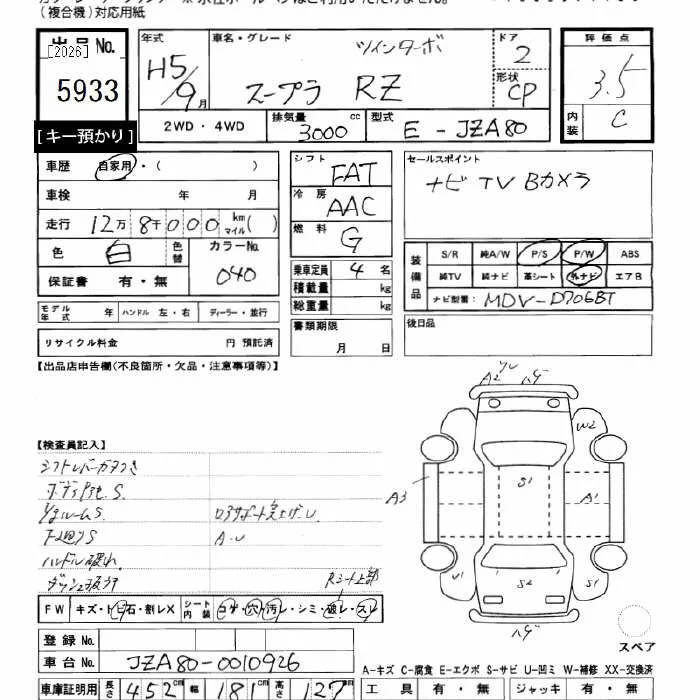 (複合機)対応用紙
出品No.
[2026]
5933
[キー預かり]
年式
H5/9月
車名・グレード
ツインターボ
スープラ RZ
ドア
2
形状
CP
評価点
3.5
内装
C
2WD・4WD
排気量
3000 cc
型式
E-JZA80
車歴 自家用・( )
車検 年 月
走行 12万8千000 km マイル( )
色 白 色替
カラーNo.
040
保証書 有・無
シフト
FAT
冷房
AAC
燃料
G
乗車定員 4名
積載量 kg
総重量 kg
セールスポイント
ナビ TV Bカメラ
装備品
S/R 純A/W P/S P/W ABS
純TV 純ナビ 革シート 外ナビ エアB
ナビ型番: MDV-D706BT
モデル年式 年 ハンドル 左・右 ディーラー・並行
リサイクル料金 円 預託済
書類期限
月 日
後日品
【出品店申告欄(不良箇所・欠品・注意事項等)】
【検査員記入】
シフトレバーガタつき
S.
S.
下廻りS
A-U
ハンドル破れ
Rシート上部
FW キズ・ト・飛石・割レX
シート内装 コゲ・穴・汚レ・シミ・破レ・スレ
A2
ハゲ
W2
S1
A3
A1
U1
S2
S1
ハゲ
スペア
登録No.
車台No. JZA80-0010926
A-キズ C-腐食 E-エクボ S-サビ U-凹ミ W-補修 XX-交換済
車庫証明用 長さ 452cm 幅 181cm 高さ 127cm
工具 有・無 ジャッキ 有・無